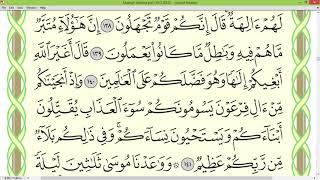 لَهُمْ ءَالِهَةٌ قَالَ إِنَّكُمْ قَوْمٌ تَجْهَلُونَ ١٣٨ إِنَّ هَٰٓؤُلَآءِ مُتَبَّرٌ
مَّا هُمْ فِيهِ وَبَٰطِلٌ مَّا كَانُوا۟ يَعْمَلُونَ ١٣٩ قَالَ أَغَيْرَ ٱللَّهِ
أَبْغِيكُمْ إِلَٰهًا وَهُوَ فَضَّلَكُمْ عَلَى ٱلْعَٰلَمِينَ ١٤٠ وَإِذْ أَنجَيْنَٰكُم
مِّنْ ءَالِ فِرْعَوْنَ يَسُومُونَكُمْ سُوٓءَ ٱلْعَذَابِ يُقَتِّلُونَ
أَبْنَآءَكُمْ وَيَسْتَحْيُونَ نِسَآءَكُمْ وَفِى ذَٰلِكُم بَلَآءٌ
مِّن رَّبِّكُمْ عَظِيمٌ ١٤١ وَوَٰعَدْنَا مُوسَىٰ ثَلَٰثِينَ لَيْلَةً